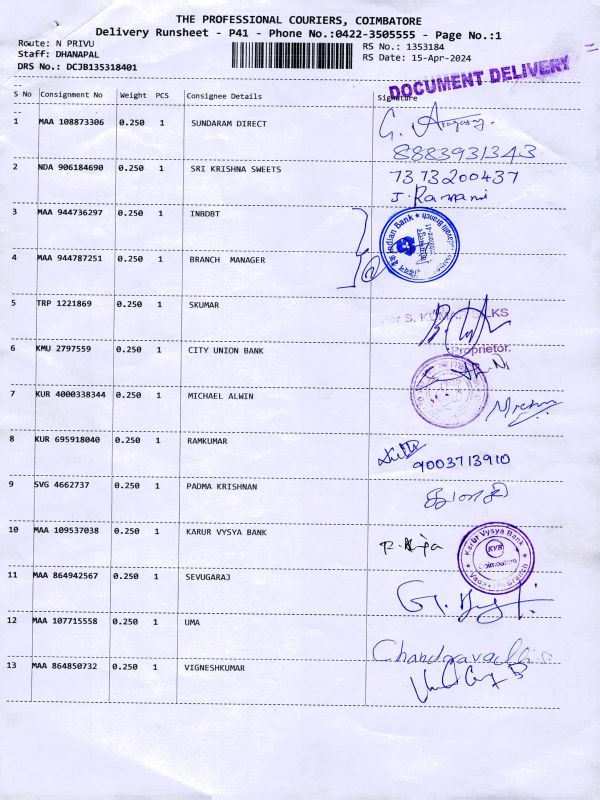 THE PROFESSIONAL COURIERS, COIMBATORE
Delivery Runsheet - P41 - Phone No.:0422-3505555 - Page No.:1
Route: N PRIVU
RS No.: 1353184
Staff: DHANAPAL
RS Date: 15-Apr-2024
DRS No.: DCJB135318401
DOCUMENT DELIVERY
S No Consignment No Weight PCS Consignee Details Signature
1 MAA 108873306 0.250 1 SUNDARAM DIRECT
8883931343
2 NDA 906184690 0.250 1 SRI KRISHNA SWEETS 7373200437
J. Ramani
3 MAA 944736297 0.250 1 INBDBT
Indian Bank
4 MAA 944787251 0.250 1 BRANCH MANAGER
5 TRP 1221869 0.250 1 SKUMAR
Proprietor.
6 KMU 2797559 0.250 1 CITY UNION BANK
7 KUR 4000338344 0.250 1 MICHAEL ALWIN
8 KUR 695918040 0.250 1 RAMKUMAR
9003713910
9 SVG 4662737 0.250 1 PADMA KRISHNAN
10 MAA 109537038 0.250 1 KARUR VYSYA BANK
Karur Vysya Bank
KVB
Coimbatore
11 MAA 864942567 0.250 1 SEVUGARAJ
12 MAA 107715558 0.250 1 UMA
13 MAA 864850732 0.250 1 VIGNESHKUMAR